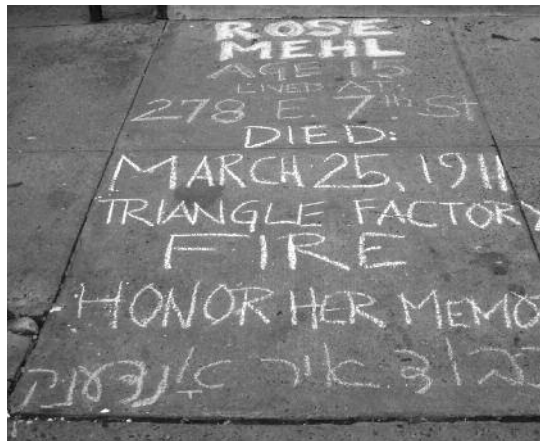 ROSE
MEHL
AGE 15
LIVED AT:
278 E. 7th St
DIED:
MARCH 25, 1911
TRIANGLE FACTORY
FIRE
HONOR HER MEMO
כבוד איר אָנדענק